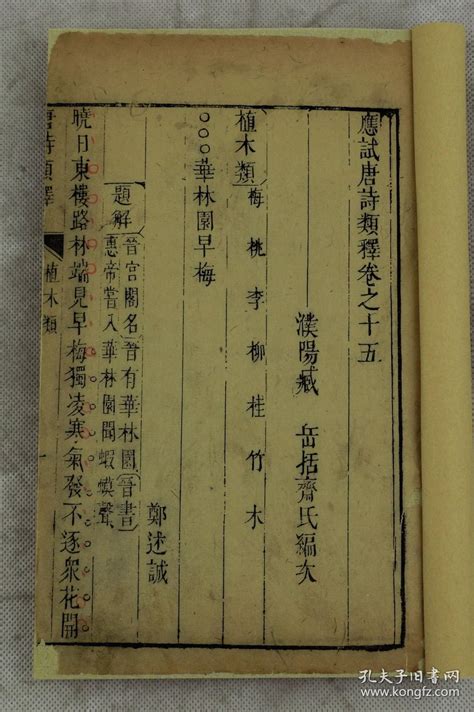 應試唐詩類釋卷之十五
濮陽臧 岳括齋氏編次
植木類 梅 桃 李 柳 桂 竹 木
○○○華林園早梅
鄭述誠
題解 晉宮閣名晉有華林園 晉書
惠帝嘗入華林園聞蝦蟆聲
曉日東樓路林端見早梅獨凌寒氣發不逐衆花開
唐詩類釋
植木類
孔夫子旧书网
www.kongfz.com